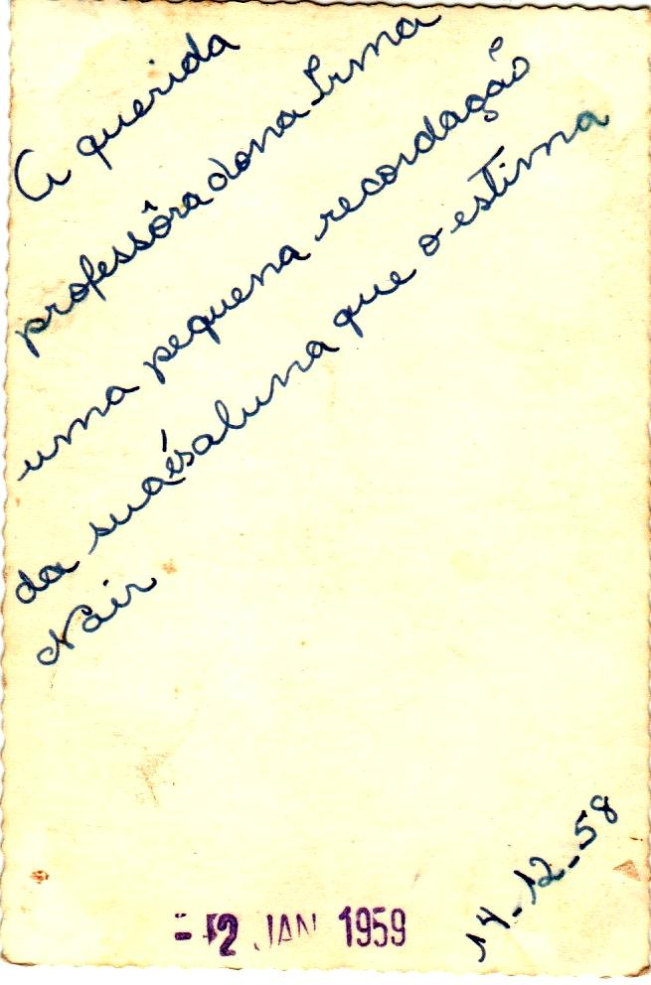 A querida
professôra dona Irma
uma pequena recordação
da suaésaluna que o estima
Nair
14-12-58
-2 JAN 1959